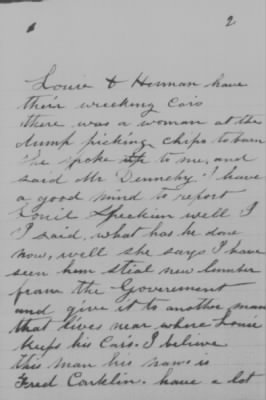 2
Louie & Herman have
their wrecking Cars
there was a woman at the
dump picking chips to burn
She spoke up to me, and
said Mr Dennehy I have
a good mind to report
Louie Speckien well I
I said, what has he done
now, well she says I have
seen him steal new lumber
from the Government
and give it to another man
that lives near where Louie
keeps his Cars. I believe
this man his name is
Fred Carklin. have a lot